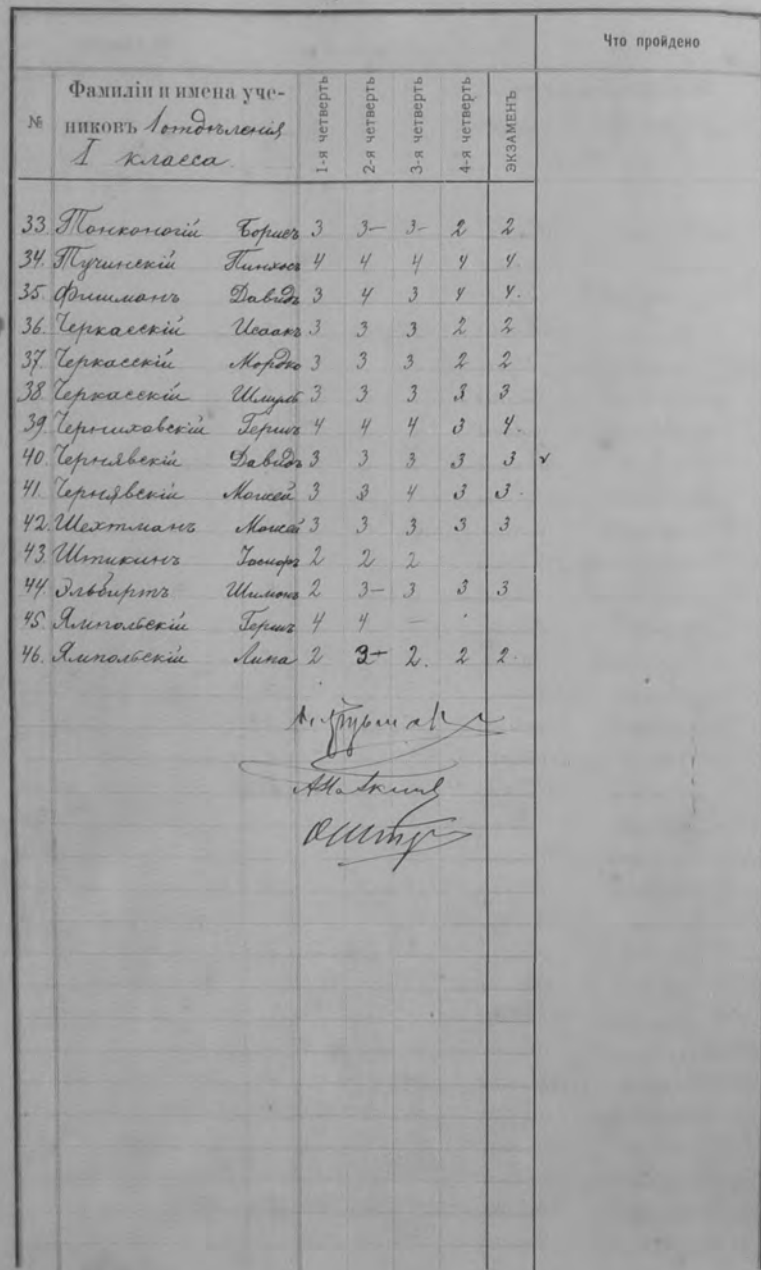 Что пройдено
№ Фамиліи и имена уче- 1-я четверть 2-я четверть 3-я четверть 4-я четверть ЭКЗАМЕНЪ
никовъ 1 отдѣленія
I класса.
33. Тонконогій Борисъ 3 3- 3- 2 2
34. Тучинскій Пинхосъ 4 4 4 4 4.
35. Фишманъ Давидъ 3 4 3 4 4.
36. Черкасскій Исаакъ 3 3 3 2 2
37. Черкасскій Мордко 3 3 3 2 2
38. Черкасскій Шмуль 3 3 3 3 3
39. Черниховскій Гершъ 4 4 4 3 4.
40. Чернявскій Давидъ 3 3 3 3 3 v
41. Чернявскій Моисей 3 3 4 3 3.
42. Шехтманъ Моисей 3 3 3 3 3
43. Штикинъ Іосифъ 2 2 2
44. Эльбиртъ Шимонъ 2 3- 3 3 3
45. Ямпольскій Гершъ 4 4 —
46. Ямпольскій Липа 2 3+ 2. 2 2.